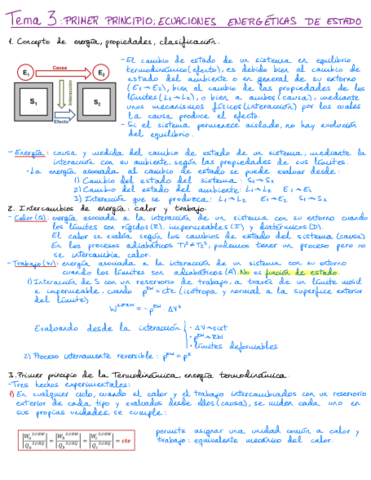 Tema 3: PRIMER PRINCIPIO; ECUACIONES ENERGÉTICAS DE ESTADO
1. Concepto de energía, propiedades, clasificación.
Causa
E₁
E₂
Interacción
S₁
S₂
Efecto
- El cambio de estado de un sistema en equilibrio
termodinámico (efecto), es debido bien al cambio de
estado del ambiente o en general de su entorno
(E₁→E₂), bien al cambio de las propiedades de los
límites (L₁→L₂), o bien a ambos (causa), mediante
unos mecanismos físicos (interacción) por los cuales
la causa produce el efecto.
- Si el sistema permanece aislado, no hay evolución
del equilibrio.
- Energía: causa y medida del cambio de estado de un sistema, mediante la
interacción con su ambiente, según las propiedades de sus límites.
· La energía asociada al cambio de estado se puede evaluar desde:
1) Cambio del estado del sistema: S₁→S₂
2) Cambio del estado del ambiente: L₁→L₂ E₁→E₂
3) Interacción que se produzca: L₁→L₂ E₁→E₂ S₁→S₂
2. Intercambios de energía: calor y trabajo.
- Calor (Q): energía asociada a la interacción de un sistema con su entorno cuando
los límites son rígidos (R), impermeables (I) y diatérmicos (D).
El calor se evalúa según los cambios de estado del sistema (causa)
En los procesos adiabáticos T₁ᴬ≠T₂ᴬ, podemos tener un proceso pero no
se intercambia calor.
- Trabajo (W): energía asociada a la interacción de un sistema con su entorno
cuando los límites son adiabáticos (A). No es función de estado.
1) Interacción de S con un reservorio de trabajo, a través de un límite móvil
e impermeable, cuando pᴱᴹ = cte (isótropa y normal a la superficie exterior
del límite)
= - pᴱᴹ ΔVˢ
Evaluando desde la interacción
· límites deformables
2) Proceso internamente reversible: pᴱᴹ = pˢ
3. Primer principio de la Termodinámica, energía termodinámica.
- Tres hechos experimentales:
1) En cualquier ciclo, cuando el calor y el trabajo intercambiados con un reservorio
exterior de cada tipo y evaluados desde ellos (causa), se miden cada uno en
sus propias unidades, se cumple:
= cte
permite asignar una unidad común a calor y
trabajo: equivalente mecánico del calor.